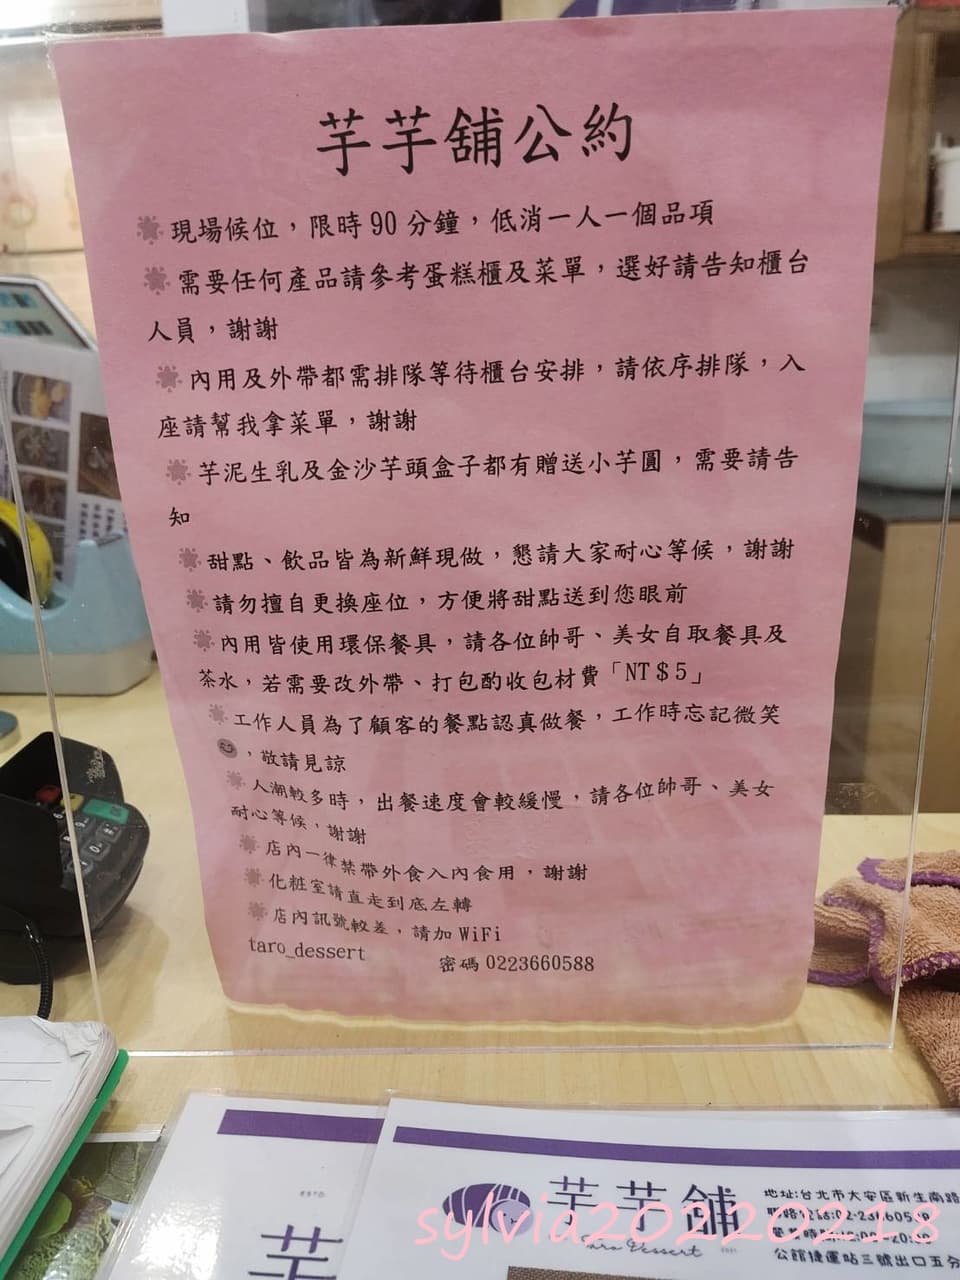 芋芋舖公約
現場候位，限時90分鐘，低消一人一個品項
需要任何產品請參考蛋糕櫃及菜單，選好請告知櫃台
人員，謝謝
內用及外帶都需排隊等待櫃台安排，請依序排隊，入
座請幫我拿菜單，謝謝
芋泥生乳及金沙芋頭盒子都有贈送小芋圓，需要請告
知
甜點、飲品皆為新鮮現做，懇請大家耐心等候，謝謝
請勿擅自更換座位，方便將甜點送到您眼前
內用皆使用環保餐具，請各位帥哥、美女自取餐具及
茶水，若需要改外帶、打包酌收包材費「NT$5」
工作人員為了顧客的餐點認真做餐，工作時忘記微笑
，敬請見諒
人潮較多時，出餐速度會較緩慢，請各位帥哥、美女
耐心等候，謝謝
店內一律禁帶外食入內食用，謝謝
化粧室請直走到底左轉
店內訊號較差，請加WiFi
taro_dessert 密碼0223660588
ESTD
芋
芋芋舖
Taro Dessert
地址:台北市大安區新生南路
聯絡電話:02-23660588
公館捷運站三號出口五分
sylvia20220218